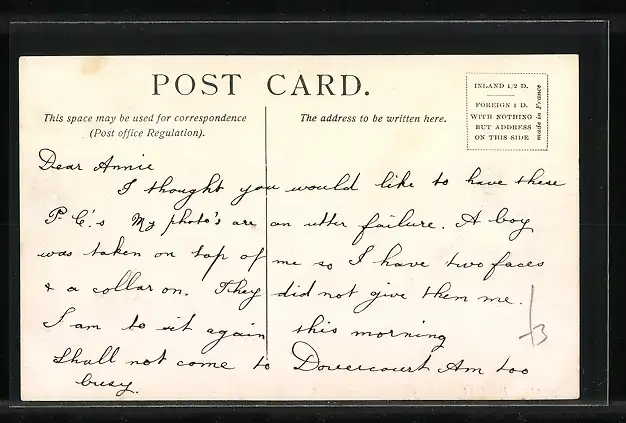 POST CARD.
This space may be used for correspondence
(Post office Regulation).
The address to be written here.
INLAND 1/2 D.
FOREIGN 1 D.
WITH NOTHING
BUT ADDRESS
ON THIS SIDE
made in France
Dear Annie
I thought you would like to have these
P.C.'s My photo's are an utter failure. A boy
was taken on top of me so I have two faces
& a collar on. They did not give them me.
I am to sit again this morning
Shall not come to Dovercourt Am too
busy.